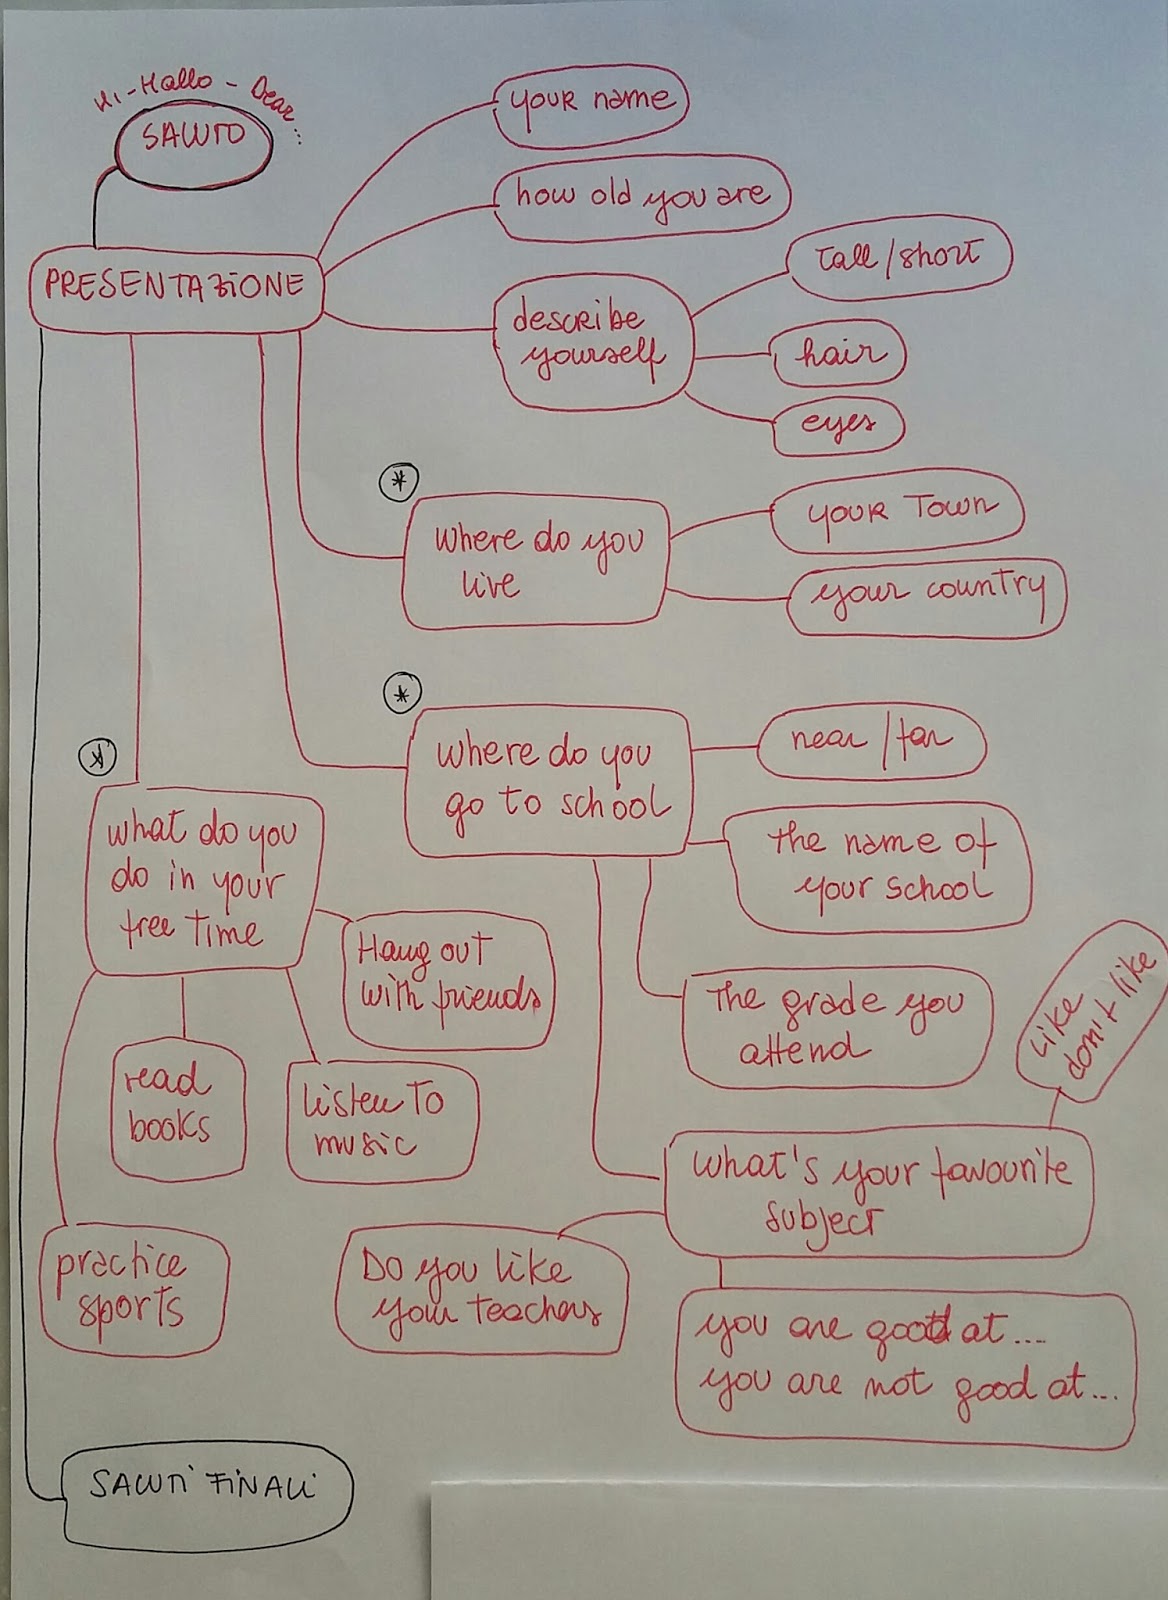 Hi - Hallo - Dear...
SALUTO
PRESENTAZIONE
your name
how old you are
describe
yourself
tall/short
hair
eyes
*
where do you
live
your town
your country
*
where do you
go to school
near/far
the name of
your school
the grade you
attend
like
don't like
what's your favourite
subject
Do you like
your teachers
you are good at....
you are not good at...
*
what do you
do in your
free time
Hang out
with friends
listen to
music
read
books
practice
sports
SALUTI FINALI